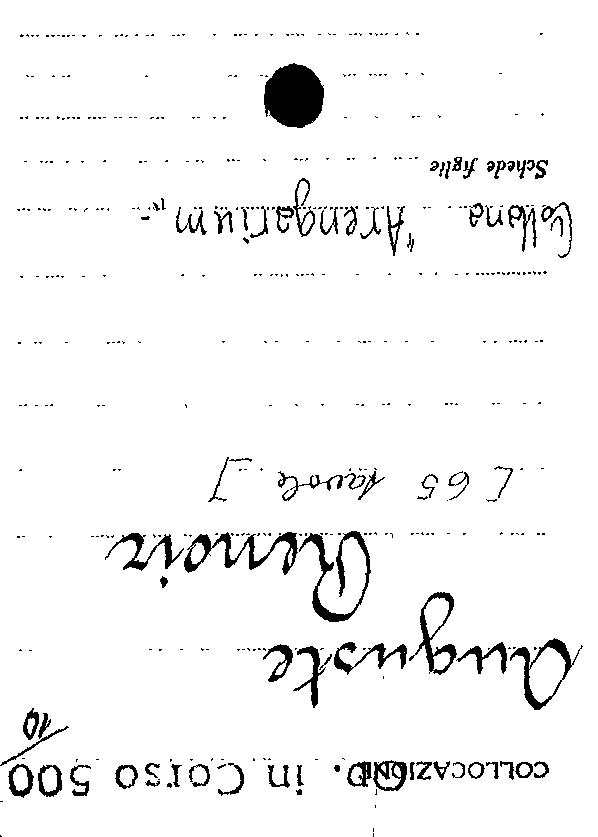 COLLOCAZIONE O.P. in Corso 500/10
Auguste
Renoir
[65 tavole]
Collana "Arengarium"
Schede figlie